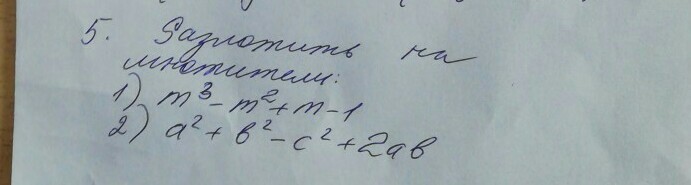 5. Разложить на
множители:
1) m³ - m² + m - 1
2) a² + b² - c² + 2ab